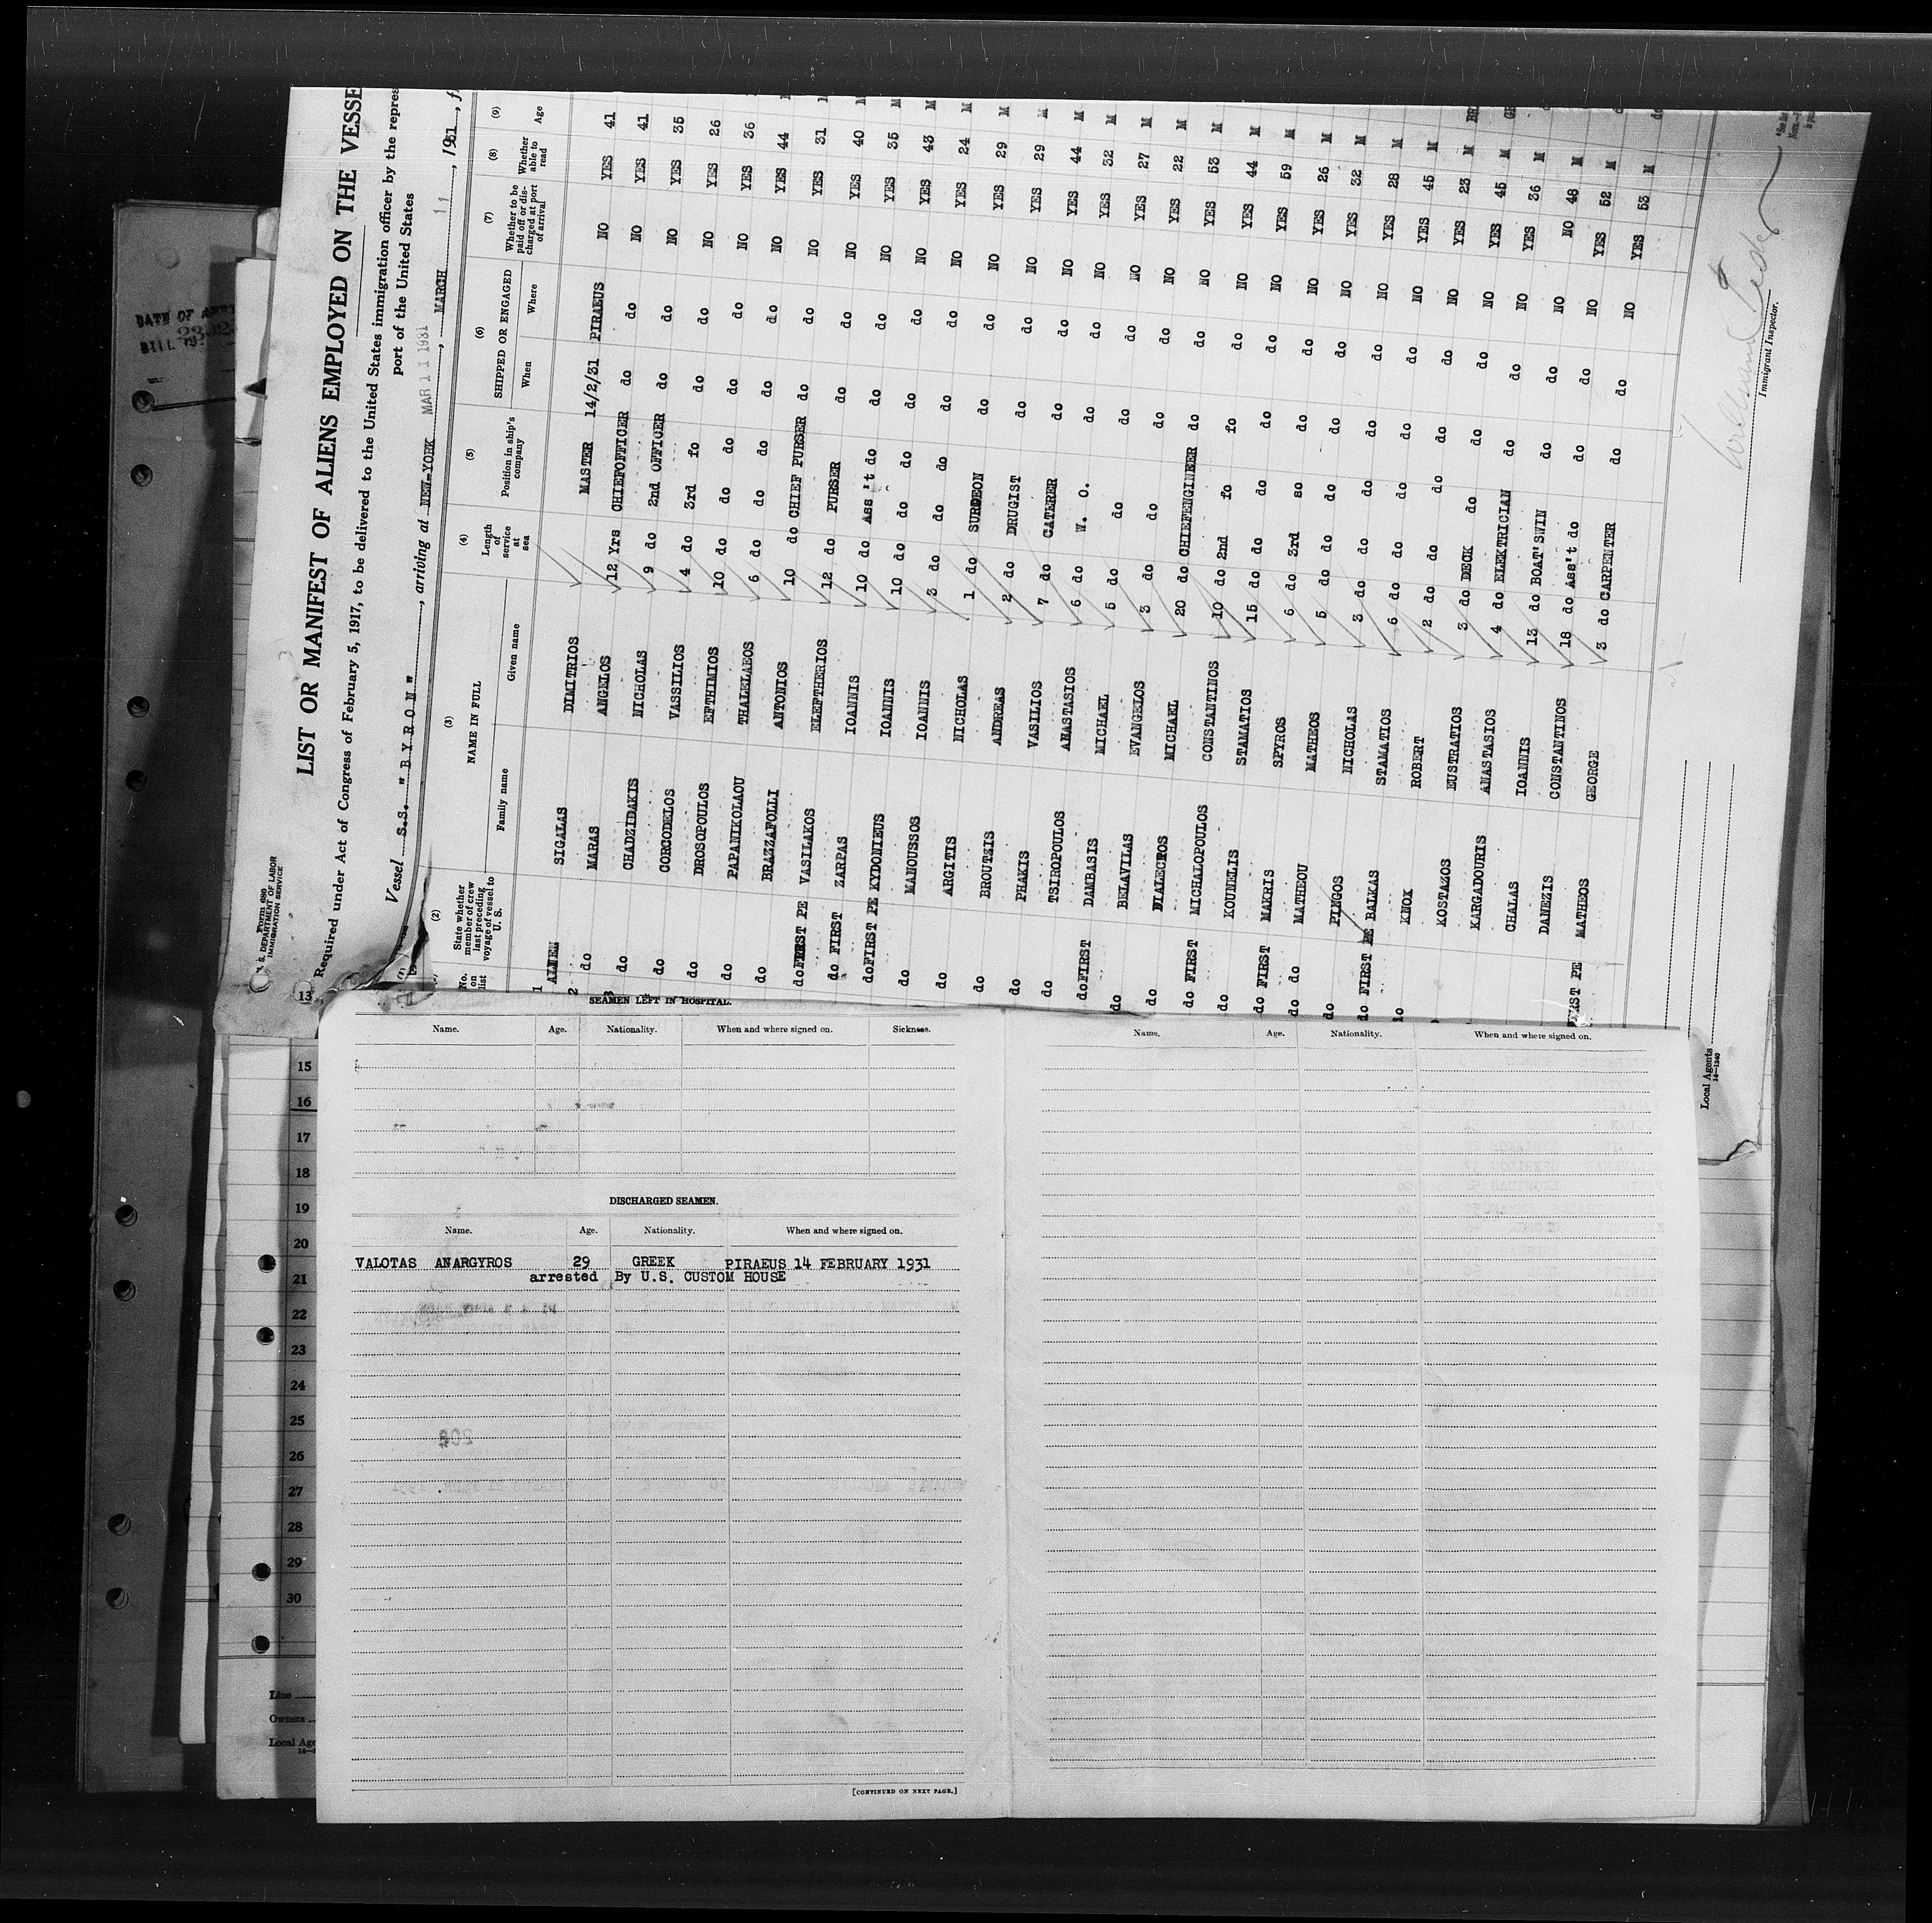 DATE OF
Form 680
U. S. DEPARTMENT OF LABOR
IMMIGRATION SERVICE
LIST OR MANIFEST OF ALIENS EMPLOYED ON THE VESSE
Required under Act of Congress of February 5, 1917, to be delivered to the United States immigration officer by the repres
port of the United States
Vessel S.S. "BYRON", arriving at NEW-YORK MAR 11 1931, MARCH 11, 1931, f
(2) (3) (4) (5) (6) (7) (8) (9)
No. on list
State whether member of crew last preceding voyage of vessel to U. S.
NAME IN FULL
Family name Given name
Length of service at sea
Position in ship's company
SHIPPED OR ENGAGED
When Where
Whether to be paid off or discharged at port of arrival
Whether able to read
Age
1 ALIEN SIGALAS DIMITRIOS MASTER 14/2/31 PIRAEUS NO YES 41
2 do MARAS ANGELOS 12 Yrs CHIEFOFFICER do do NO YES 41
do CHADZIDAKIS NICHOLAS 9 do 2nd OFFICER do do NO YES 35
do GORGODELOS VASSILIOS 4 do 3rd fo do do NO YES 26
do DROSOPOULOS EFTHIMIOS 10 do do do do NO YES 36
do PAPANIKOLAOU THALELAEOS 6 do do do do NO YES 44
do BRAZZAFOLLI ANTONIOS 10 do CHIEF PURSER do do NO YES 31
do FIRST PE VASILAKOS ELEFTHERIOS 12 do PURSER do do NO YES 40 M
do FIRST ZARPAS IOANNIS 10 do Ass't do do do NO YES 35 M
do FIRST PE KYDONIEUS IOANNIS 10 do do do do NO YES 43 M
do MANOUSSOS IOANNIS 3 do do do do NO YES 24 M
do ARGITIS NICHOLAS 1 do SURGEON do do NO YES 29 M
do BROUTZIS ANDREAS 2 do DRUGIST do do NO YES 29 M
do PHAKIS VASILIOS 7 do CATERER do do NO YES 44 M
do TSIROPOULOS ANASTASIOS 6 do W. O. do do NO YES 32 M
do FIRST DAMBASIS MICHAEL 5 do do do do NO YES 27 M
do BELAVILAS EVANGELOS 3 do do do do NO YES 22 M
do DIALECTOS MICHAEL 20 do CHIEFENGINEER do do NO YES 53 M
do FIRST MICHALOPOULOS CONSTANTINOS 10 do 2nd fo do do NO YES 44 M
do KOUNELIS STAMATIOS 15 do do do do NO YES 59 M
do FIRST MAKRIS SPYROS 6 do 3rd so do do NO YES 26 M
do do MATHEOU MATHEOS 5 do do do do NO YES 32 M
do PINGOS NICHOLAS 3 do do do do NO YES 28 M
do FIRST PE BALKAS STAMATIOS 6 do do do do NO YES 45 M
do KNOX ROBERT 2 do do do do NO YES 23 M
KOSTAZOS EUSTRATIOS 3 do DECK do do do NO YES 45 M
KARGADOURIS ANASTASIOS 4 do ELEKTRICIAN do do NO YES 36 M
CHALAS IOANNIS 13 do BOAT'SWIN do do NO NO 48 M
DANEZIS CONSTANTINOS 18 do Ass't do do do NO YES 52 M
FIRST PE MATHEOS GEORGE 3 do CARPENTER do do NO YES 53 M
Immigrant Inspector.
Local Agents
14—1240
13
15
16
17
18
19
20
21
22
23
24
25
26
27
28
29
30
Line
Owners
Local Age
SEAMEN LEFT IN HOSPITAL.
Name. Age. Nationality. When and where signed on. Sickness.
DISCHARGED SEAMEN.
Name. Age. Nationality. When and where signed on.
VALOTAS ANARGYROS 29 GREEK PIRAEUS 14 FEBRUARY 1931
arrested By U.S. CUSTOM HOUSE
[CONTINUED ON NEXT PAGE.]
Name. Age. Nationality. When and where signed on.